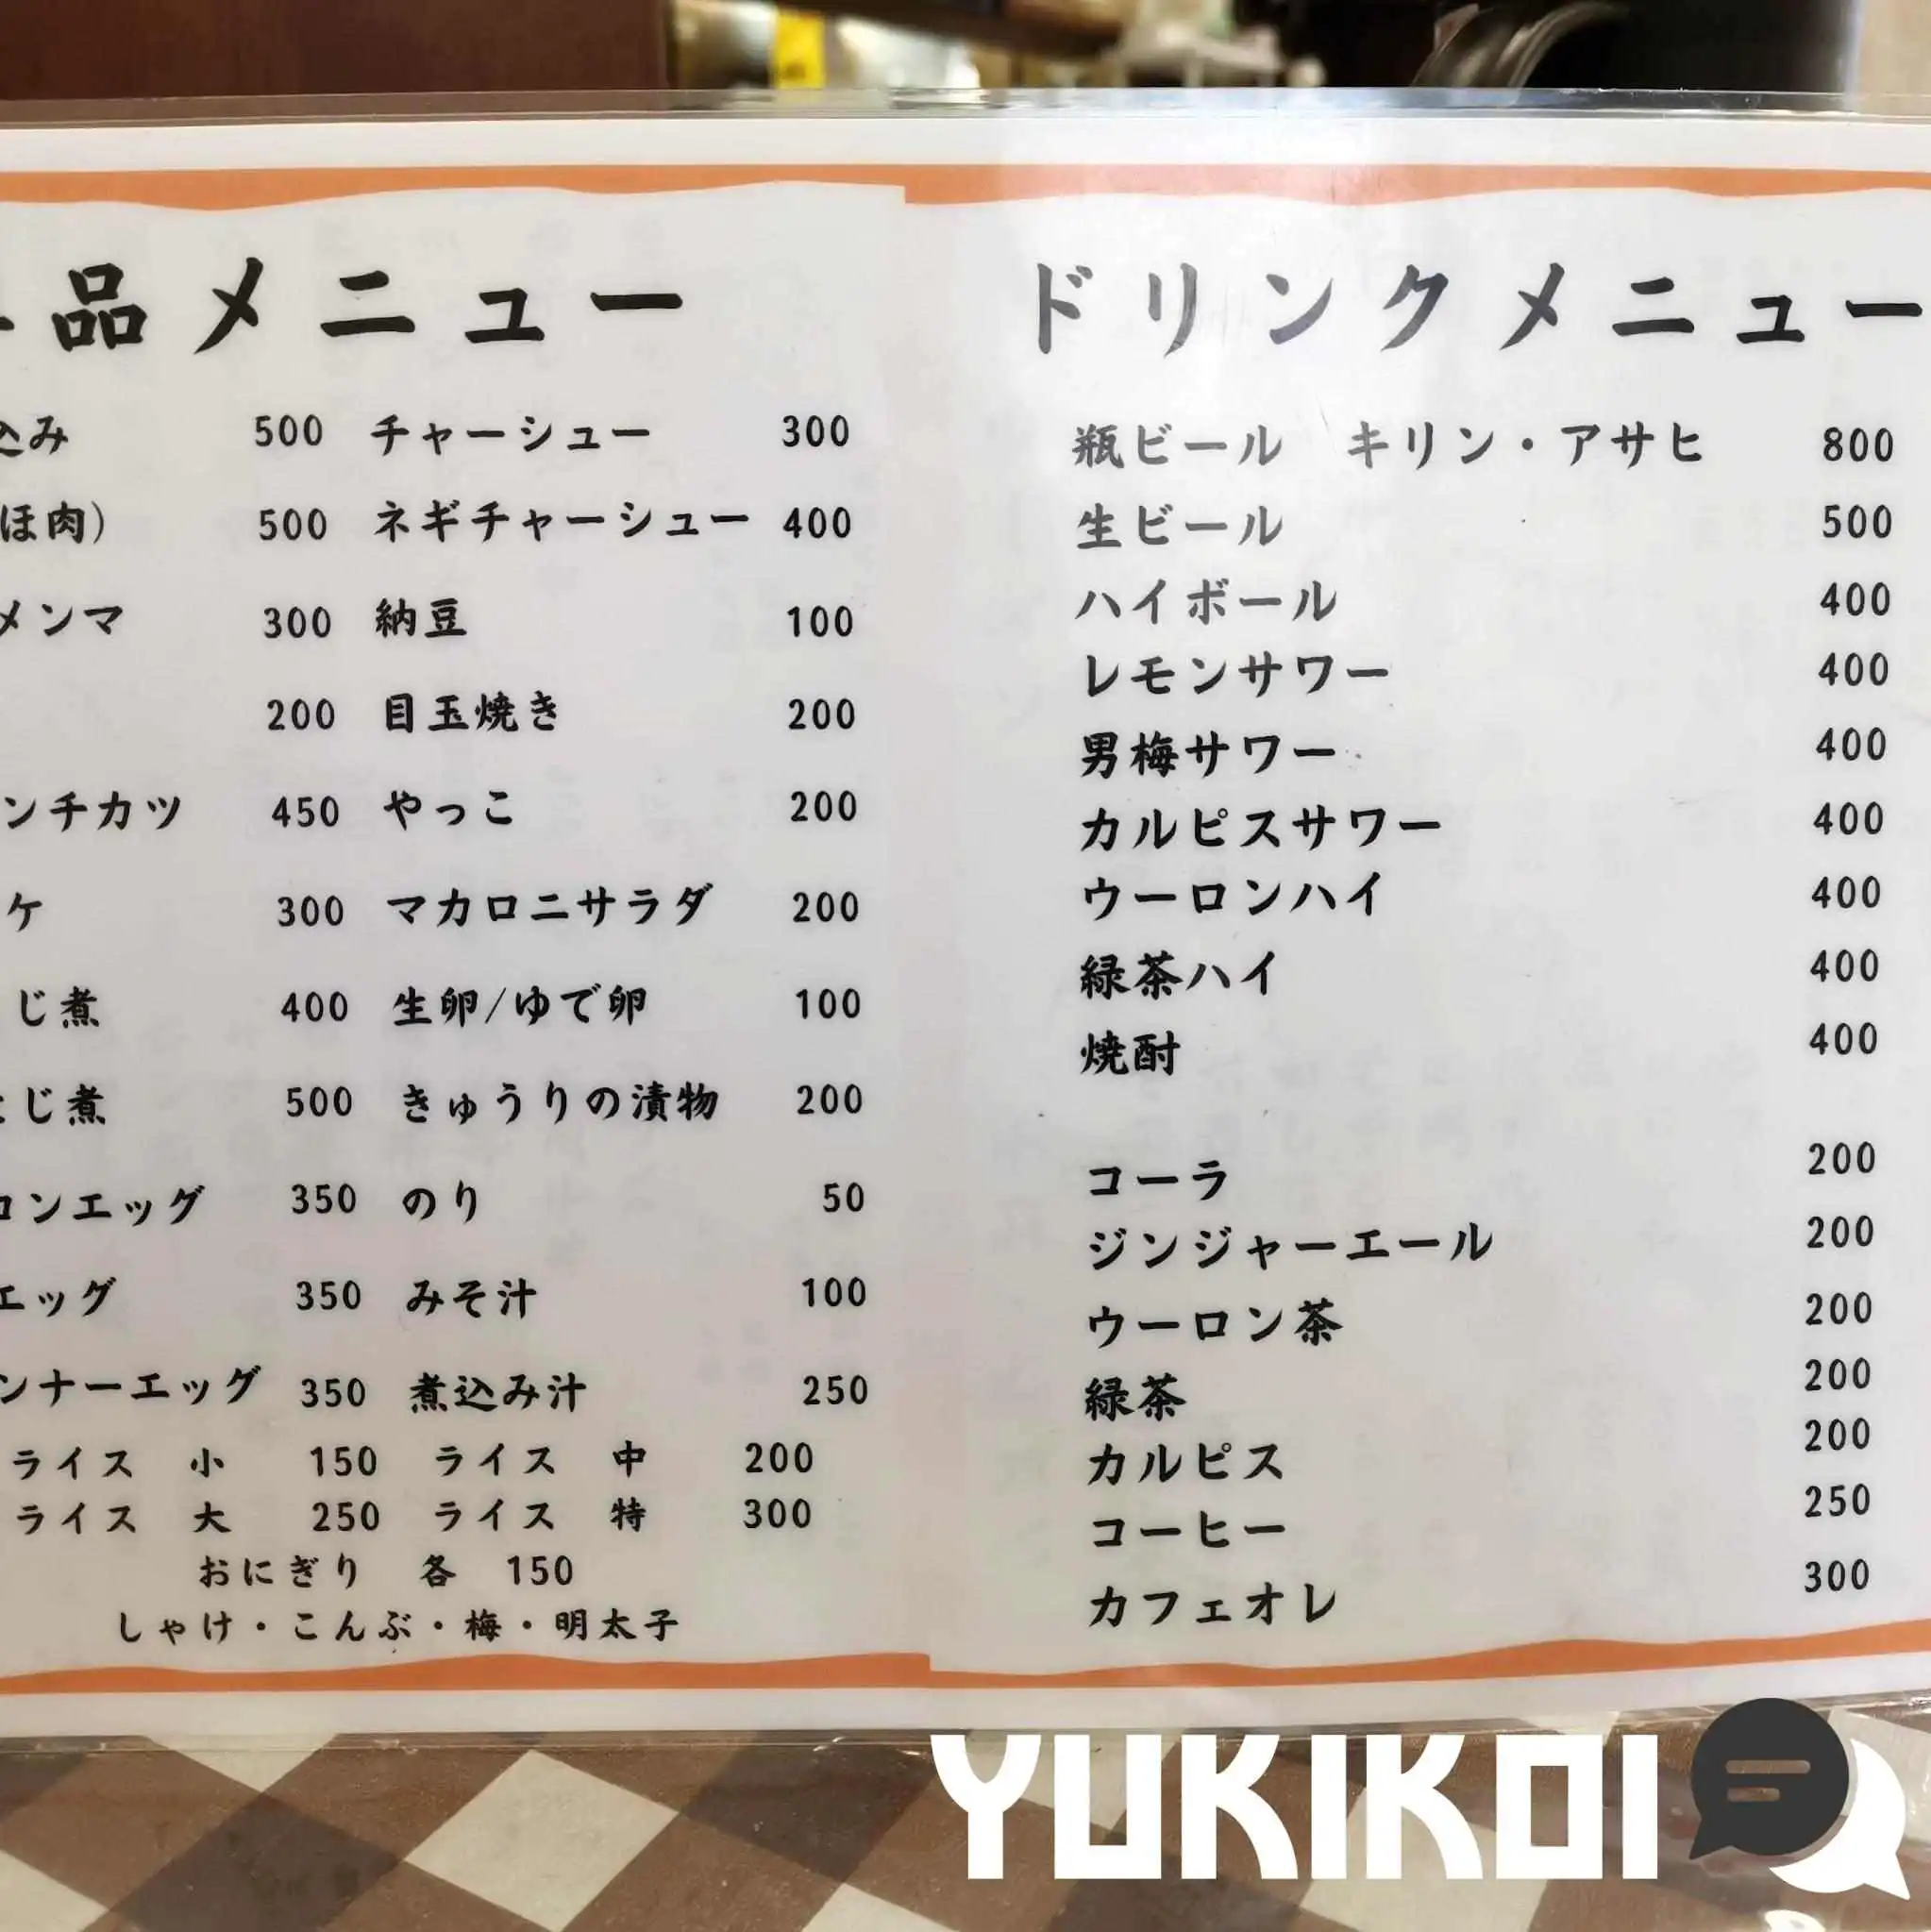 品メニュー
込み 500 チャーシュー 300
ほ肉) 500 ネギチャーシュー 400
メンマ 300 納豆 100
200 目玉焼き 200
ンチカツ 450 やっこ 200
ケ 300 マカロニサラダ 200
じ煮 400 生卵/ゆで卵 100
とじ煮 500 きゅうりの漬物 200
コンエッグ 350 のり 50
エッグ 350 みそ汁 100
ンナーエッグ 350 煮込み汁 250
ライス 小 150 ライス 中 200
ライス 大 250 ライス 特 300
おにぎり 各 150
しゃけ・こんぶ・梅・明太子
ドリンクメニュー
瓶ビール キリン・アサヒ 800
生ビール 500
ハイボール 400
レモンサワー 400
男梅サワー 400
カルピスサワー 400
ウーロンハイ 400
緑茶ハイ 400
焼酎 400
コーラ 200
ジンジャーエール 200
ウーロン茶 200
緑茶 200
カルピス 200
コーヒー 250
カフェオレ 300
YUKIKOI